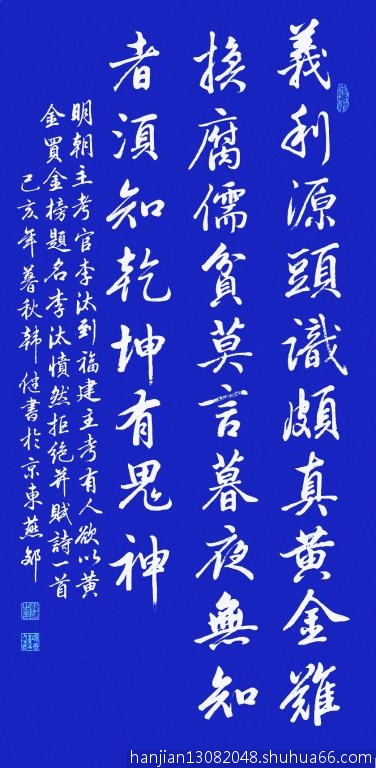 義利源頭識頗真黄金難
換腐儒貧莫言暮夜無知
者須知乾坤有鬼神
明朝主考官李汰到福建主考有人欲以黄
金買金榜題名李汰憤然拒絕并賦詩一首
己亥年暮秋韩健書於京東燕郊
hanjian13082048.shuhua66.com